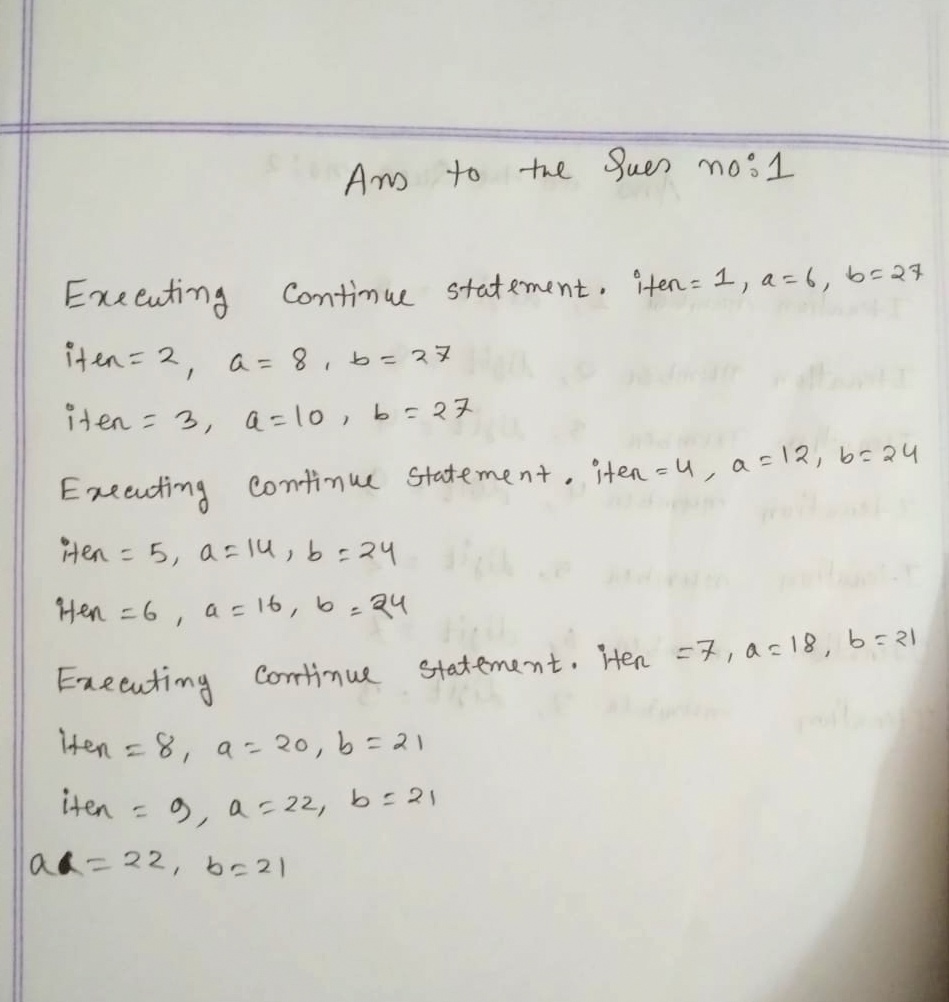 Ans to the Ques no: 1
Executing Continue statement. iter= 1, a=6, b=27
iter= 2, a= 8, b= 27
iter = 3, a=10, b= 27
Executing Continue Statement. iter=4, a=12, b=24
iter = 5, a=14, b=24
iter =6, a=16, b=24
Executing Continue Statement. iter =7, a=18, b=21
iter = 8, a= 20, b= 21
iter = 9, a=22, b=21
a = 22, b=21